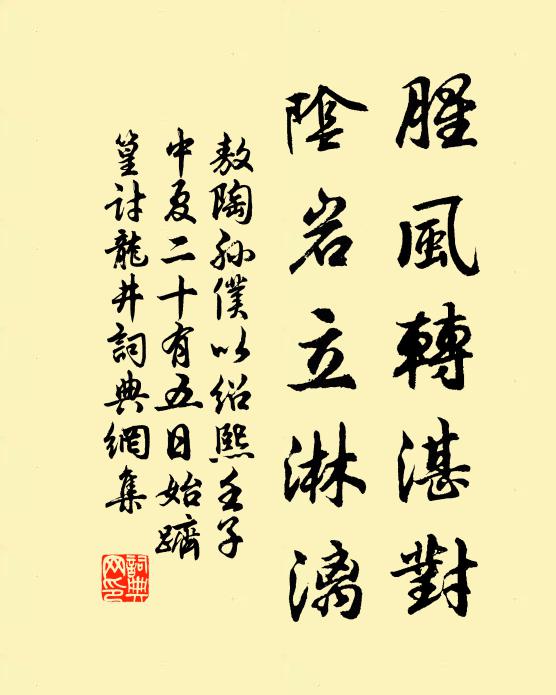 腥風轉湛對
陰岩立淋漓
敖陶孫僕以紹熙壬子
中夏二十有五日始躋
篁討龍井詞典網集
詞典
网印